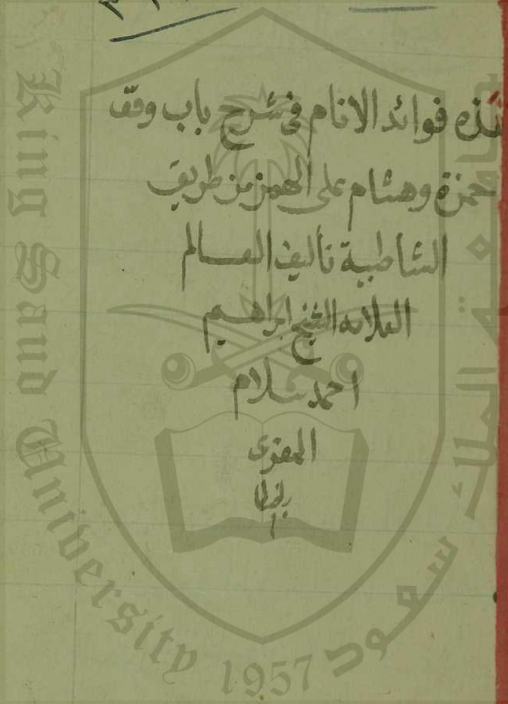 هذه فوائد الانام فى شرح باب وقف
حمزة وهشام على الهمز من طريق
الشاطبية تأليف العالم
العلامه الشيخ ابراهيم
احمد سلام
المقرى
King Saud University 1957